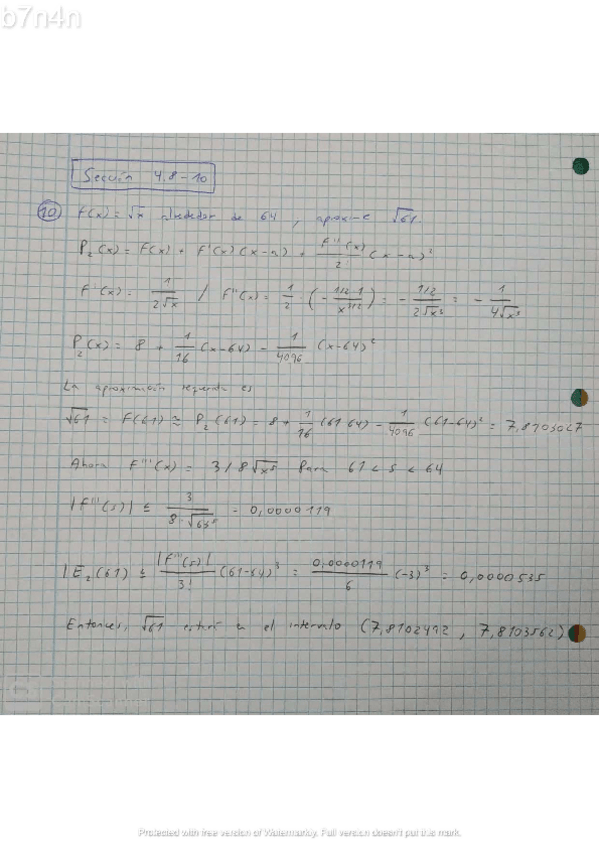 b7n4n
Sección 4.8-10
10) f(x) = √x alrededor de 64, aproxime √61.
P₂(x) = f(x) + f'(x)(x-a) + f''(x)/2! (x-a)²
f'(x) = 1/(2√x) / f''(x) = 1/2 · (- 1/2·1/x^(3/2)) = - (1/2)/(2√x³) = - 1/(4√x³)
P₂(x) = 8 + 1/16 (x-64) - 1/4096 (x-64)²
La aproximación requerida es
√61 = f(61) ≅ P₂(61) = 8 + 1/16 (61-64) - 1/4096 (61-64)² = 7,8103027
Ahora f'''(x) = 3/8√x⁵ Para 61 < s < 64
|f'''(s)| ≤ = 0,0000119
|E₂(61) ≤ |f'''(s)|/3! (61-64)³ = 0,0000119/6 (-3)³ = 0,0000535
Entonces, √61 estará en el intervalo (7,8102492, 7,8103562)
Protected with free version of Watermarkly. Full version doesn't put this mark.